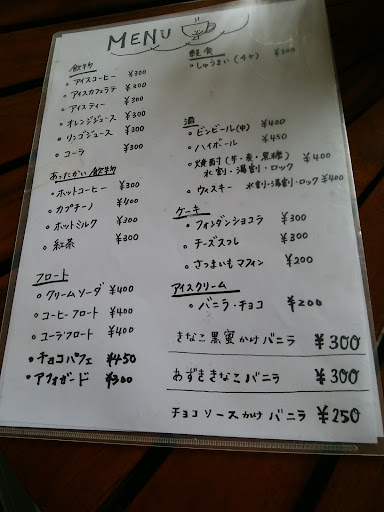 MENU
飲物
• アイスコーヒー ¥300
• アイスカフェラテ ¥300
• アイスティー ¥300
• オレンジジュース ¥300
• リンゴジュース ¥300
• コーラ ¥300
あったかい飲物
• ホットコーヒー ¥300
• カプチーノ ¥400
• ホットミルク ¥300
• 紅茶 ¥300
フロート
• クリームソーダ ¥400
• コーヒーフロート ¥400
• コーラフロート ¥400
• チョコパフェ ¥450
• アフォガード ¥300
軽食
• しゅうまい(4ケ) ¥300
酒
• ビンビール(中) ¥400
• ハイボール ¥450
• 焼酎(芋・麦・黒糖) ¥400
水割・湯割・ロック
• ウィスキー 水割・湯割・ロック ¥400
ケーキ
• フォンダンショコラ ¥300
• チーズスフレ ¥300
• さつまいもマフィン ¥200
アイスクリーム
• バニラ・チョコ ¥200
きなこ黒蜜かけバニラ ¥300
あずききなこバニラ ¥300
チョコソースかけバニラ ¥250